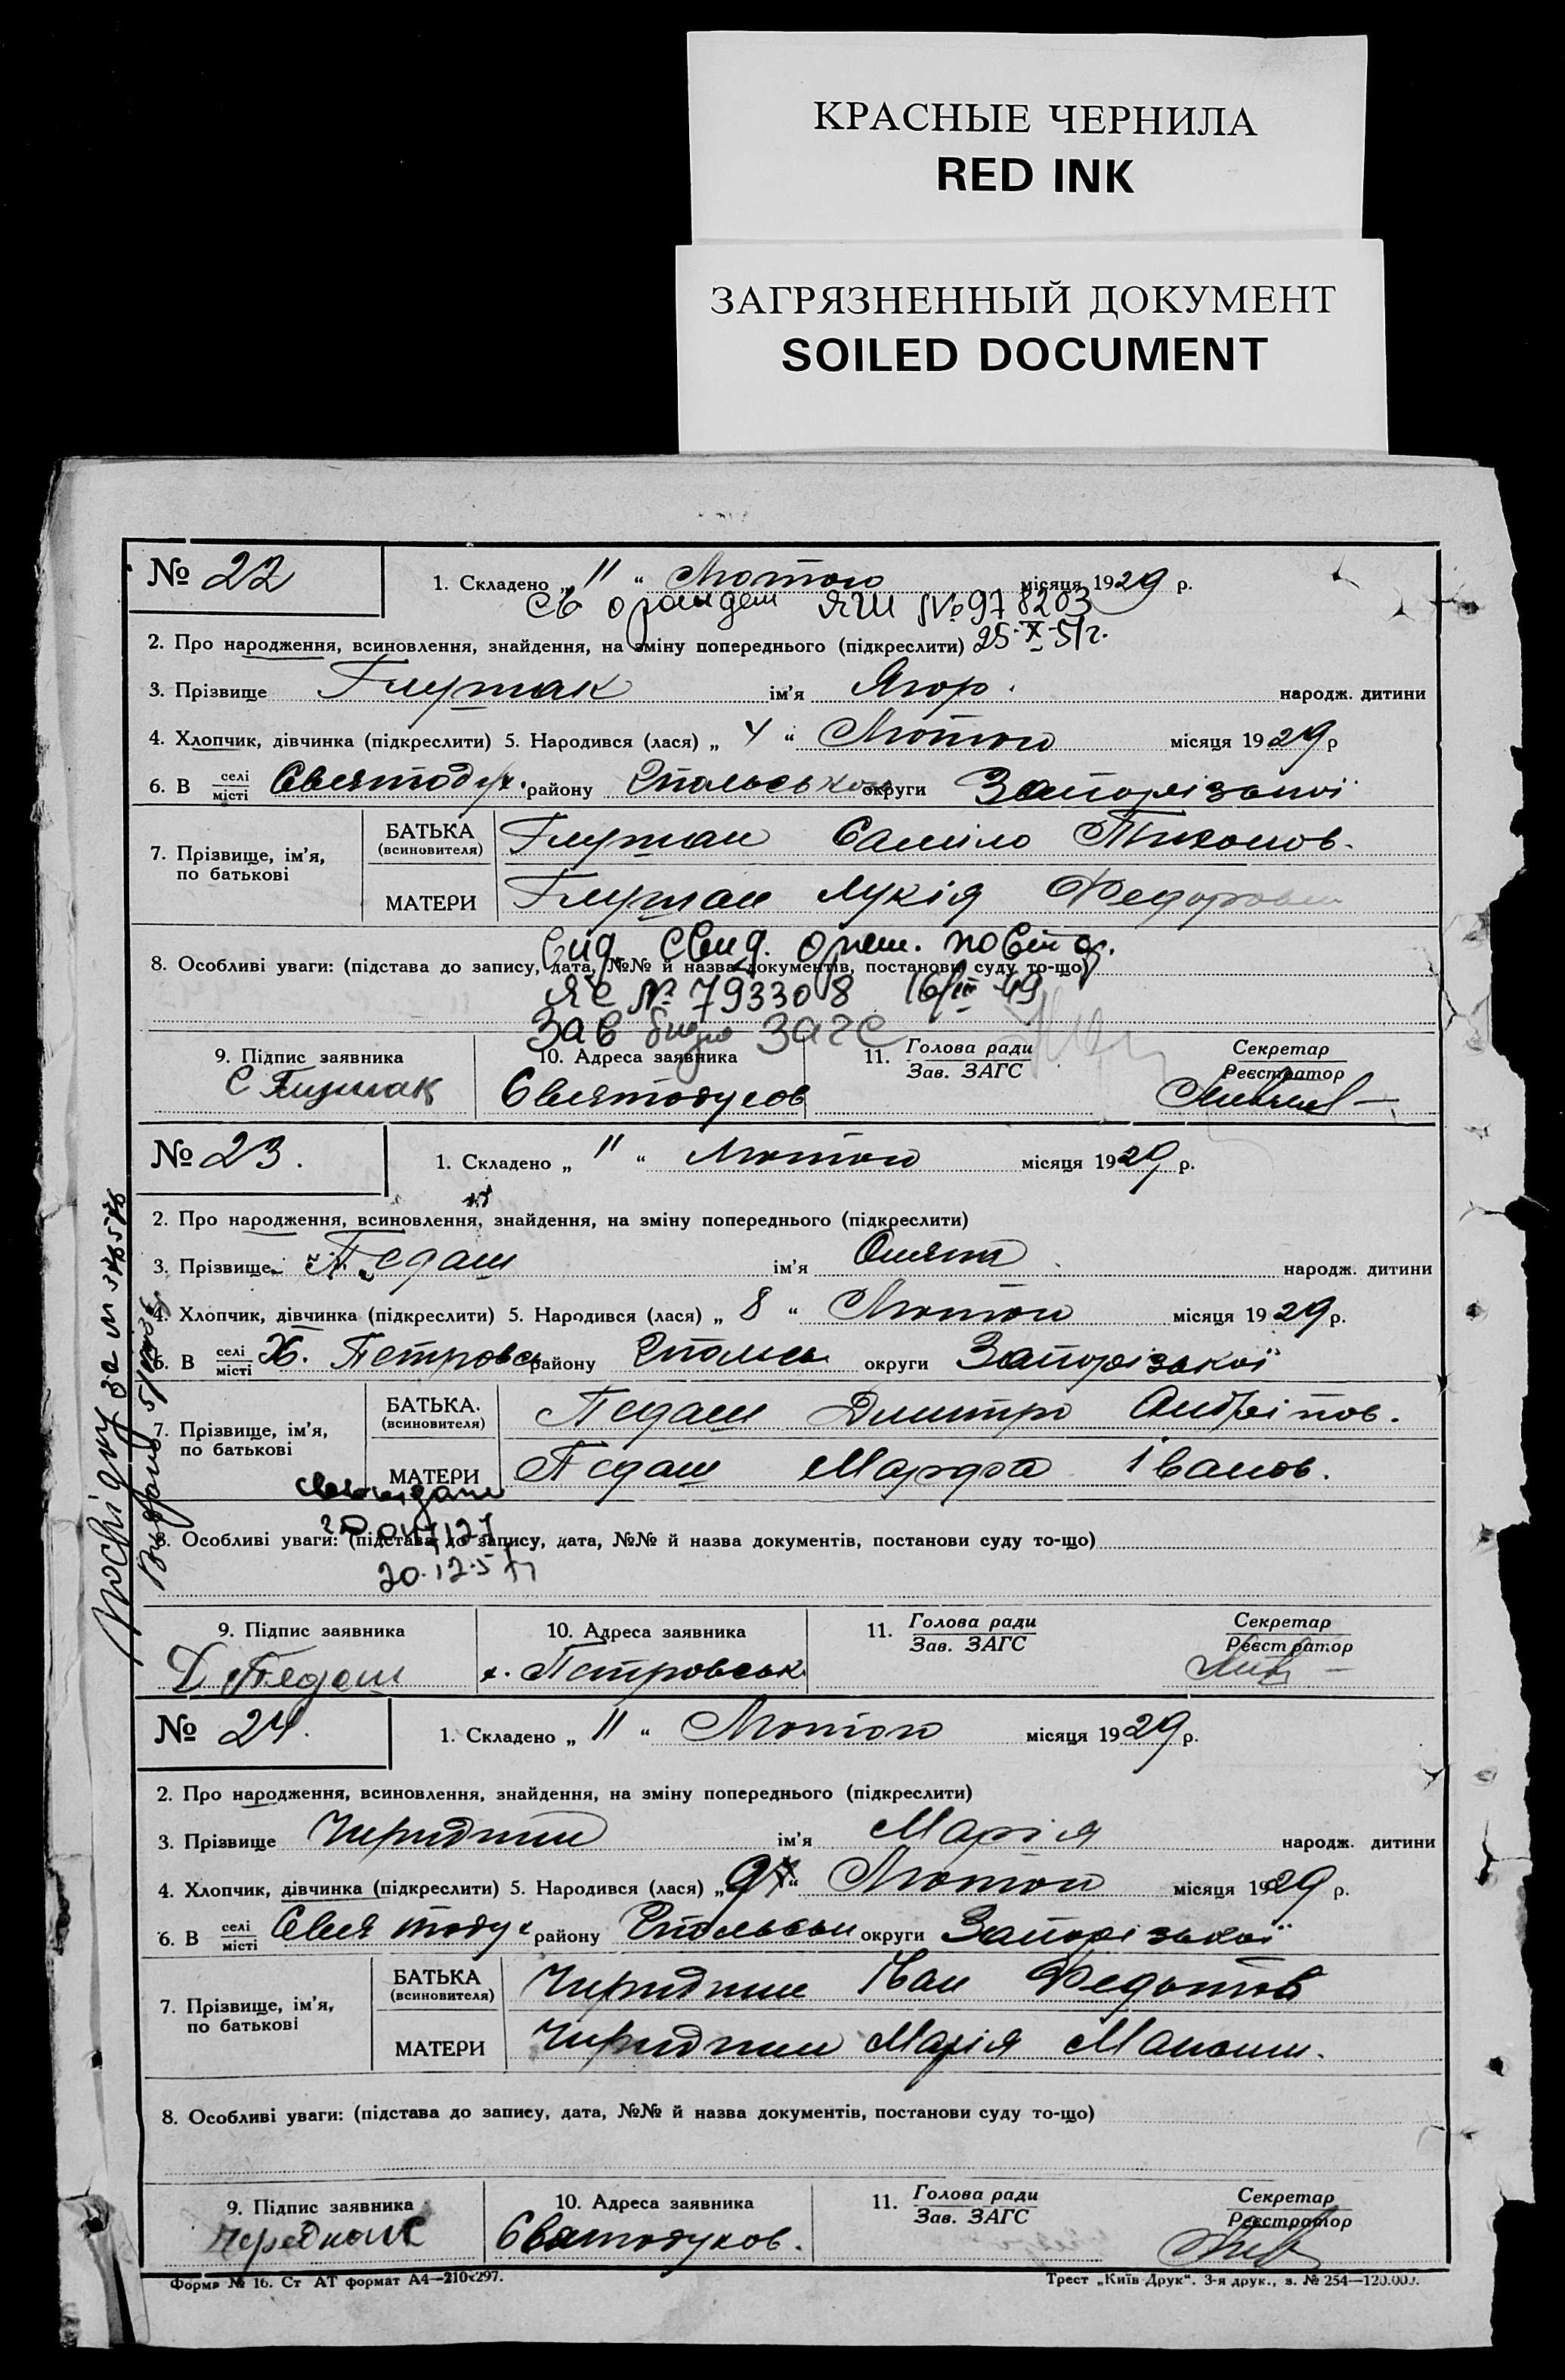 КРАСНЫЕ ЧЕРНИЛА
RED INK
ЗАГРЯЗНЕННЫЙ ДОКУМЕНТ
SOILED DOCUMENT
№ 22
1. Складено „ 11 “ Лютого місяця 1929 р.
ЯШ № 978203
2. Про народження, всиновлення, знайдення, на зміну попереднього (підкреслити) 25-X-51г.
3. Прізвище Глушак ім'я Ягор. народж. дитини
4. Хлопчик, дівчинка (підкреслити) 5. Народився (лася) „ 4 “ Лютого місяця 1929 р
6. В селі/місті Святодух. району округи Запорізької
7. Прізвище, ім'я, по батькові
БАТЬКА (всиновителя) Глушак Самійло Тихонов.
МАТЕРИ Глушак Лукія Федоровн
свид. повтор.
8. Особливі уваги: (підстава до запису, дата, №№ й назва документів, постанови суду то-що)
ЯС № 793308 16/III-49
Зав бюро ЗАГС
9. Підпис заявника 10. Адреса заявника 11. Голова ради/Зав. ЗАГС Секретар/Реєстратор
С Глушак Святодухов
№ 23.
1. Складено „ 11 “ Лютого місяця 1929 р.
2. Про народження, всиновлення, знайдення, на зміну попереднього (підкреслити)
3. Прізвище Педаш ім'я народж. дитини
4. Хлопчик, дівчинка (підкреслити) 5. Народився (лася) „ 8 “ Лютого місяця 1929 р.
6. В селі/місті Х. Петровсь району округи Запорізької
7. Прізвище, ім'я, по батькові
БАТЬКА. (всиновителя) Педаш Дмитро Андріпов.
МАТЕРИ Педаш Марфа Іванов.
8. Особливі уваги: (підстава до запису, дата, №№ й назва документів, постанови суду то-що)
20.12.57
9. Підпис заявника 10. Адреса заявника 11. Голова ради/Зав. ЗАГС Секретар/Реєстратор
Д Педаш х. Петровськ
№ 24.
1. Складено „ 11 “ Лютого місяця 1929 р.
2. Про народження, всиновлення, знайдення, на зміну попереднього (підкреслити)
3. Прізвище ім'я Марія народж. дитини
4. Хлопчик, дівчинка (підкреслити) 5. Народився (лася) „ 9 “ Лютого місяця 1929 р.
6. В селі/місті Святодух району округи Запорізької
7. Прізвище, ім'я, по батькові
БАТЬКА (всиновителя) Іван Федотов
МАТЕРИ Марія
8. Особливі уваги: (підстава до запису, дата, №№ й назва документів, постанови суду то-що)
9. Підпис заявника 10. Адреса заявника 11. Голова ради/Зав. ЗАГС Секретар/Реєстратор
Святодухов.
Форма № 16. Ст АТ формат А4—210×297.
Трест „Київ-Друк“. 3-я друк., з. № 254—120.000.